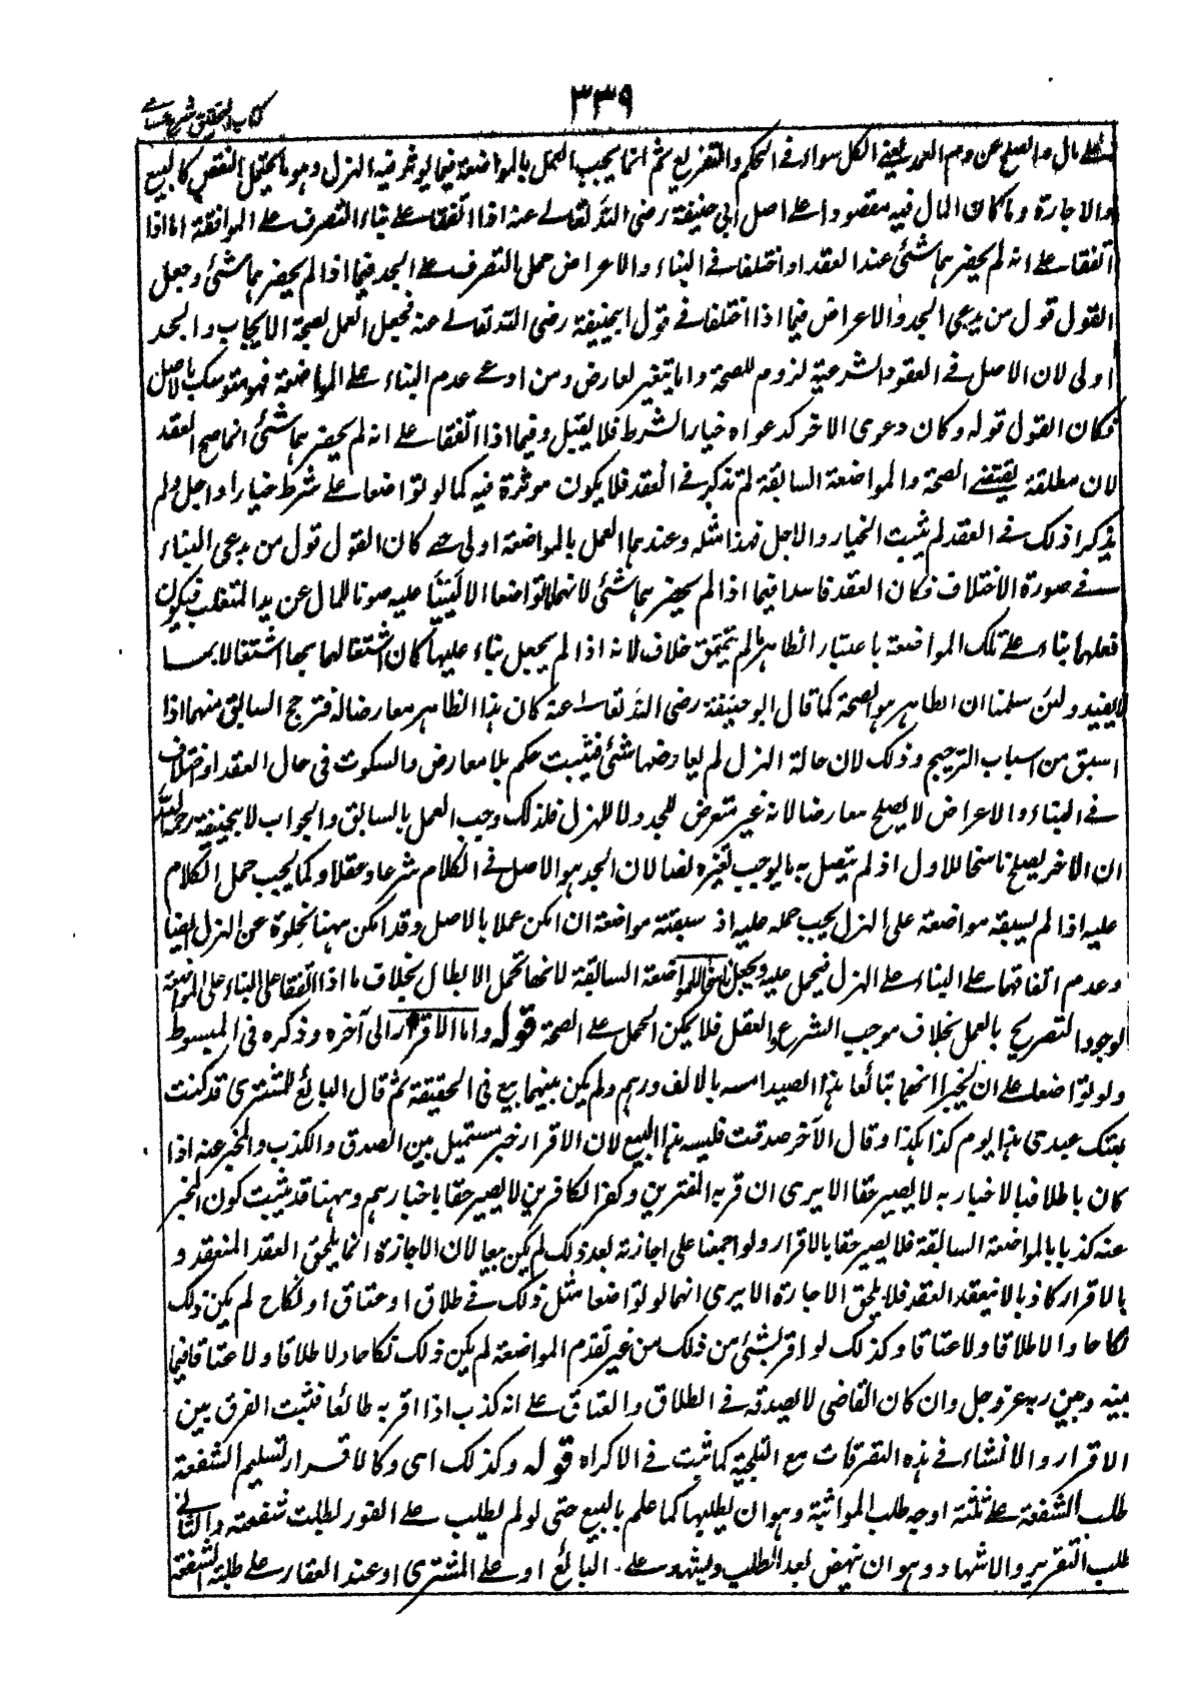 ٣٣٩
كتاب التحقيق شرح حسامي
على مال والصلح عن دم العمد يعني الكل سواء في الحكم والتفريع ثم انما يجب العمل بالمواضعة فيما يؤثر فيه الهزل وهو ما يحتمل النقض كالبيع
والاجارة وما كان المال فيه مقصودا على اصل ابي حنيفة رضي الله تعالى عنه اذا اتفقا على بناء التصرف على الموافقة اما اذا
اتفقا على انه لم يحضرهما شئ عند العقد او اختلفا في البناء والاعراض حمل التصرف على الجد فيما اذا لم يحضرهما شئ وجعل
القول قول من يدعى الجد والاعراض فيما اذا اختلفا في قول ابيحنيفة رضى الله تعالى عنه فجعل العمل بصحة الايجاب والجد
اولى لان الاصل في العقود الشرعية لزوم للصحة وانما يتغير لعارض ومن ادعى عدم البناء على المواضعة فهو متمسك بالاصل
فكان القول قوله وكان دعوى الاخر كدعواه خيار الشرط فلا يقبل وفيما اذا اتفقا على انه لم يحضرهما شئ انما صح العقد
لان مطلقه يقتضي الصحة والمواضعة السابقة لم تذكر في العقد فلا يكون موثرة فيه كما لو تواضعا على شرط خيار او اجل ولم
يذكرا ذلك في العقد لم يثبت الخيار والاجل فهذا مثله وعندهما العمل بالمواضعة اولى حتى كان القول قول من يدعى البناء
في صورة الاختلاف فكان العقد فاسدا فيما اذا لم يحضرهما شئ لانهما ما تواضعا الا ليبنيا عليه صونا للمال عن يد المتغلب فيكون
فعلهما بناء على تلك المواضعة باعتبار الظاهر ما لم يتحقق خلاف لانه اذا لم يجعل بناء عليها كان اشتغالهما بها اشتغالا بما
لا يفيد ولئن سلمنا ان الظاهر هو الصحة كما قال ابو حنيفة رضى الله تعالى عنه كان هذا الظاهر معارضا له فترجح السابق منهما اذا
اسبق من اسباب الترجيح وذلك لان حالة الهزل لم يعارضها شئ فيثبت حكمه بلا معارض والسكوت في حال العقد او اختلاف
في البناء والاعراض لا يصلح معارضا لانه غير متعرض للجد ولا للهزل فلذلك وجب العمل بالسابق والجواب لابيحنيفة رحمه الله
ان الاخر يصلح ناسخا للاول اذ لم يتصل به ما يوجب تغيره نصا لان الجد هو الاصل في الكلام شرعا وعقلا وكما يجب حمل الكلام
عليه اذا لم يسبقه مواضعة على الهزل يجب حمله عليه اذ سبقته مواضعة ان امكن عملا بالاصل وقد امكن ههنا لخلوه عن الهزل نصا
وعدم اتفاقهما على البناء على الهزل فيحمل عليه ويجعل ناسخا للمواضعة السابقة لانها تحتمل الابطال بخلاف ما اذا اتفقا على البناء على المواضعة
لوجود التصريح بالعمل بخلاف موجب الشرع والعقل فلا يمكن الحمل على الصحة قوله واما الاقرار الى آخره وذكره في المبسوط
ولو تواضعا على ان يخبرا انهما تبايعا هذا العبد امس بالف درهم ولم يكن بينهما بيع في الحقيقة ثم قال البائع للمشترى قد كنت
بعتك عبدى هذا يوم كذا بكذا وقال الآخر صدقت فليس هذا البيع لان الاقرار خبر مستميل بين الصدق والكذب والمخبر عنه اذا
كان باطلا فبالاخبار به لا يصير حقا الا يرى ان فرية المفترين وكفر الكافرين لا يصير حقا باخبارهم وههنا قد يثبت كون المخبر
عنه كذبا بالمواضعة السابقة فلا يصير حقا بالاقرار ولو اجمعا على اجازته بعد ذلك لم يكن بيعا لان الاجازة انما يلحق العقد المنعقد و
بالاقرار كاذبا لا ينعقد العقد فلا يلحق الاجازة الا يرى انهما لو تواضعا مثل ذلك في طلاق او عتاق او نكاح لم يكن ذلك
نكاحا والا طلاقا ولا عتاقا وكذلك لو اقر بشئ من ذلك من غير تقدم المواضعة لم يكن ذلك نكاحا ولا طلاقا ولا عتاقا فيما
بينه وبين ربه عز وجل وان كان القاضى لا يصدقه في الطلاق والعتاق على انه كذب اذا اقر به طائعا فثبت الفرق بين
الاقرار والانشاء في هذه التصرفات مع التلجية كما ثبت في الاكراه قوله وكذلك اى وكالاقرار تسليم الشفعة
طلب الشفعة على ثلثة اوجه طلب المواثبة وهو ان يطلبها كما علم بالبيع حتى لو لم يطلب على الفور بطلت شفعته والثاني
طلب التقرير والاشهاد وهو ان ينهض بعد الطلب ويشهد على البائع او على المشترى او عند العقار على طلبه الشفعة